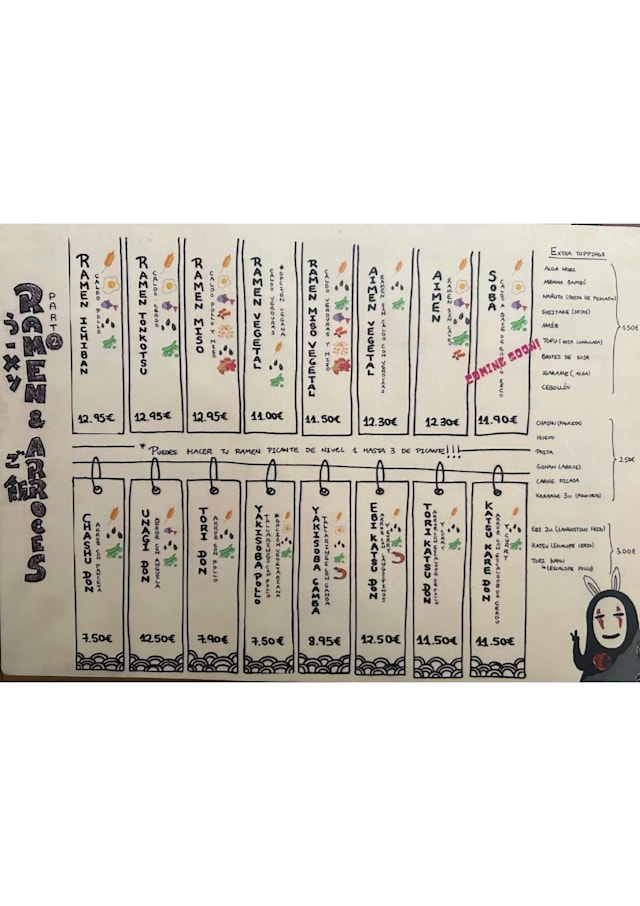 PART 2
RAMEN & ARROCES
ラーメン
ご飯
RAMEN ICHIBAN
CALDO POLLO
12.95€
RAMEN TONKOTSU
CALDO CERDO
12.95€
RAMEN MISO
CALDO POLLO Y MISO
12.95€
RAMEN VEGETAL
*OPCIÓN VEGANA
CALDO VERDURAS
11.00€
RAMEN MISO VEGETAL
CALDO VERDURAS Y MISO
11.50€
AIMEN VEGETAL
RAMEN SIN CALDO CON VERDURAS
12.30€
AIMEN
RAMEN SIN CALDO
12.30€
SOBA
CALDO BASE DE BONITO SECO
COMING SOON!
11.90€
* PUEDES HACER TU RAMEN PICANTE DE NIVEL 1 HASTA 3 DE PICANTE!!!
CHASHU DON
ARROZ CON PANCETA
7.50€
UNAGI DON
ARROZ CON ANGUILA
12.50€
TORI DON
ARROZ CON POLLO
7.90€
YAKISOBA POLLO
*OPCIÓN VEGETARIANA
TALLARINES CON POLLO
7.50€
YAKISOBA GAMBA
TALLARINES CON GAMBA
8.95€
EBI KATSU DON
ARROZ CON LANGOSTINOS
Y CURRY
12.50€
TORI KATSU DON
ARROZ CON ESCALOPE DE POLLO
Y CURRY
11.50€
KATSU KARE DON
ARROZ CON ESCALOPE DE CERDO
Y CURRY
11.50€
EXTRA TOPPINGS
ALGA NORI
MENMA BAMBÚ
NARUTO (PASTA DE PESCADO)
SHIITAKE (SETAS)
MAÍZ
TOFU (SOJA CUAJADA)
BROTES DE SOJA
WAKAME (ALGA)
CEBOLLÍN
1.50€
CHASHU (PANCETA)
HUEVO
PASTA
GOHAN (ARROZ)
CARNE PICADA
KARAAGE 3U. (PANCETA)
2.50€
EBI 2U. (LANGOSTINO FRITO)
KATSU (ESCALOPE CERDO)
TORI KATSU
(ESCALOPE POLLO)
3.00€